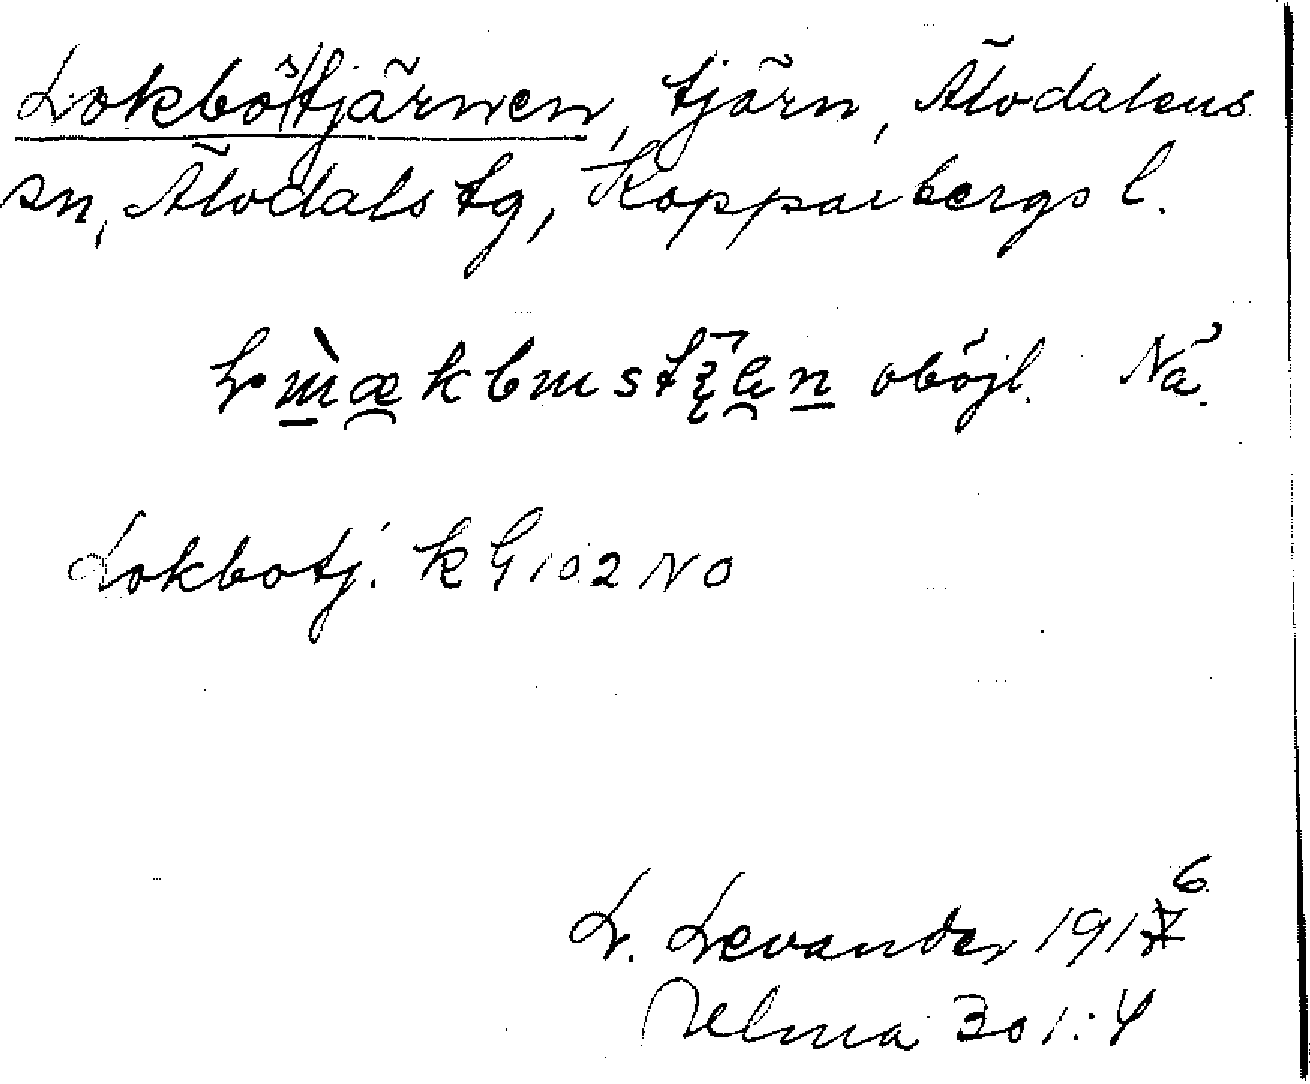 Lokbôstjärnen, tjärn, Älvdalens
sn, Älvdals tg, Kopparbergs l.
oböjl. Nä.
Lokbotj. k G 102 NO
L. Levander 1916
Selma 301:4